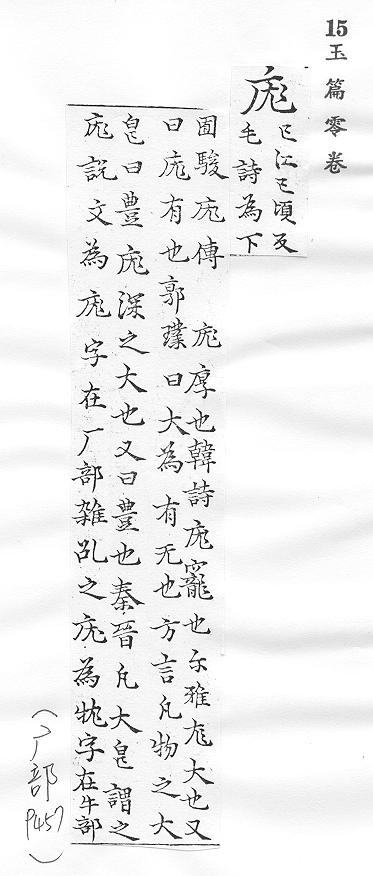 15
玉篇零卷
庬
亡江亡項反
毛詩為下
囶駿庬傳庬厚也韓詩庬寵也尓雅庬大也又
曰庬有也郭璞曰大為有无也方言凡物之大
皃曰豊庬深之大也又曰豊也秦晉凡大皃謂之
庬説文為庬字在厂部雜乱之庬為牻字在牛部
(厂部
P457)